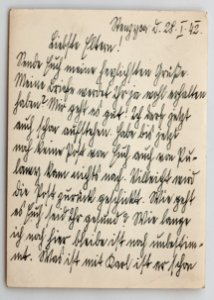 d. 28.I.42.
Liebste Eltern!
Sende Euch meine herzlichsten Grüße
Meine Briefe werdet Ihr ja wohl erhalten
haben? Mir geht es gut. Ich darf jetzt
auch schon aufstehen. Habe bis jetzt
noch keine Post von Euch auch von
kam nichts nach. Vielleicht wird
die Post zurück geschickt. Wie geht
es Euch, seid Ihr gesund? Wie lange
ich noch hier bleibe ist noch unbestim-
mt. Was ist mit Karl ist er schon